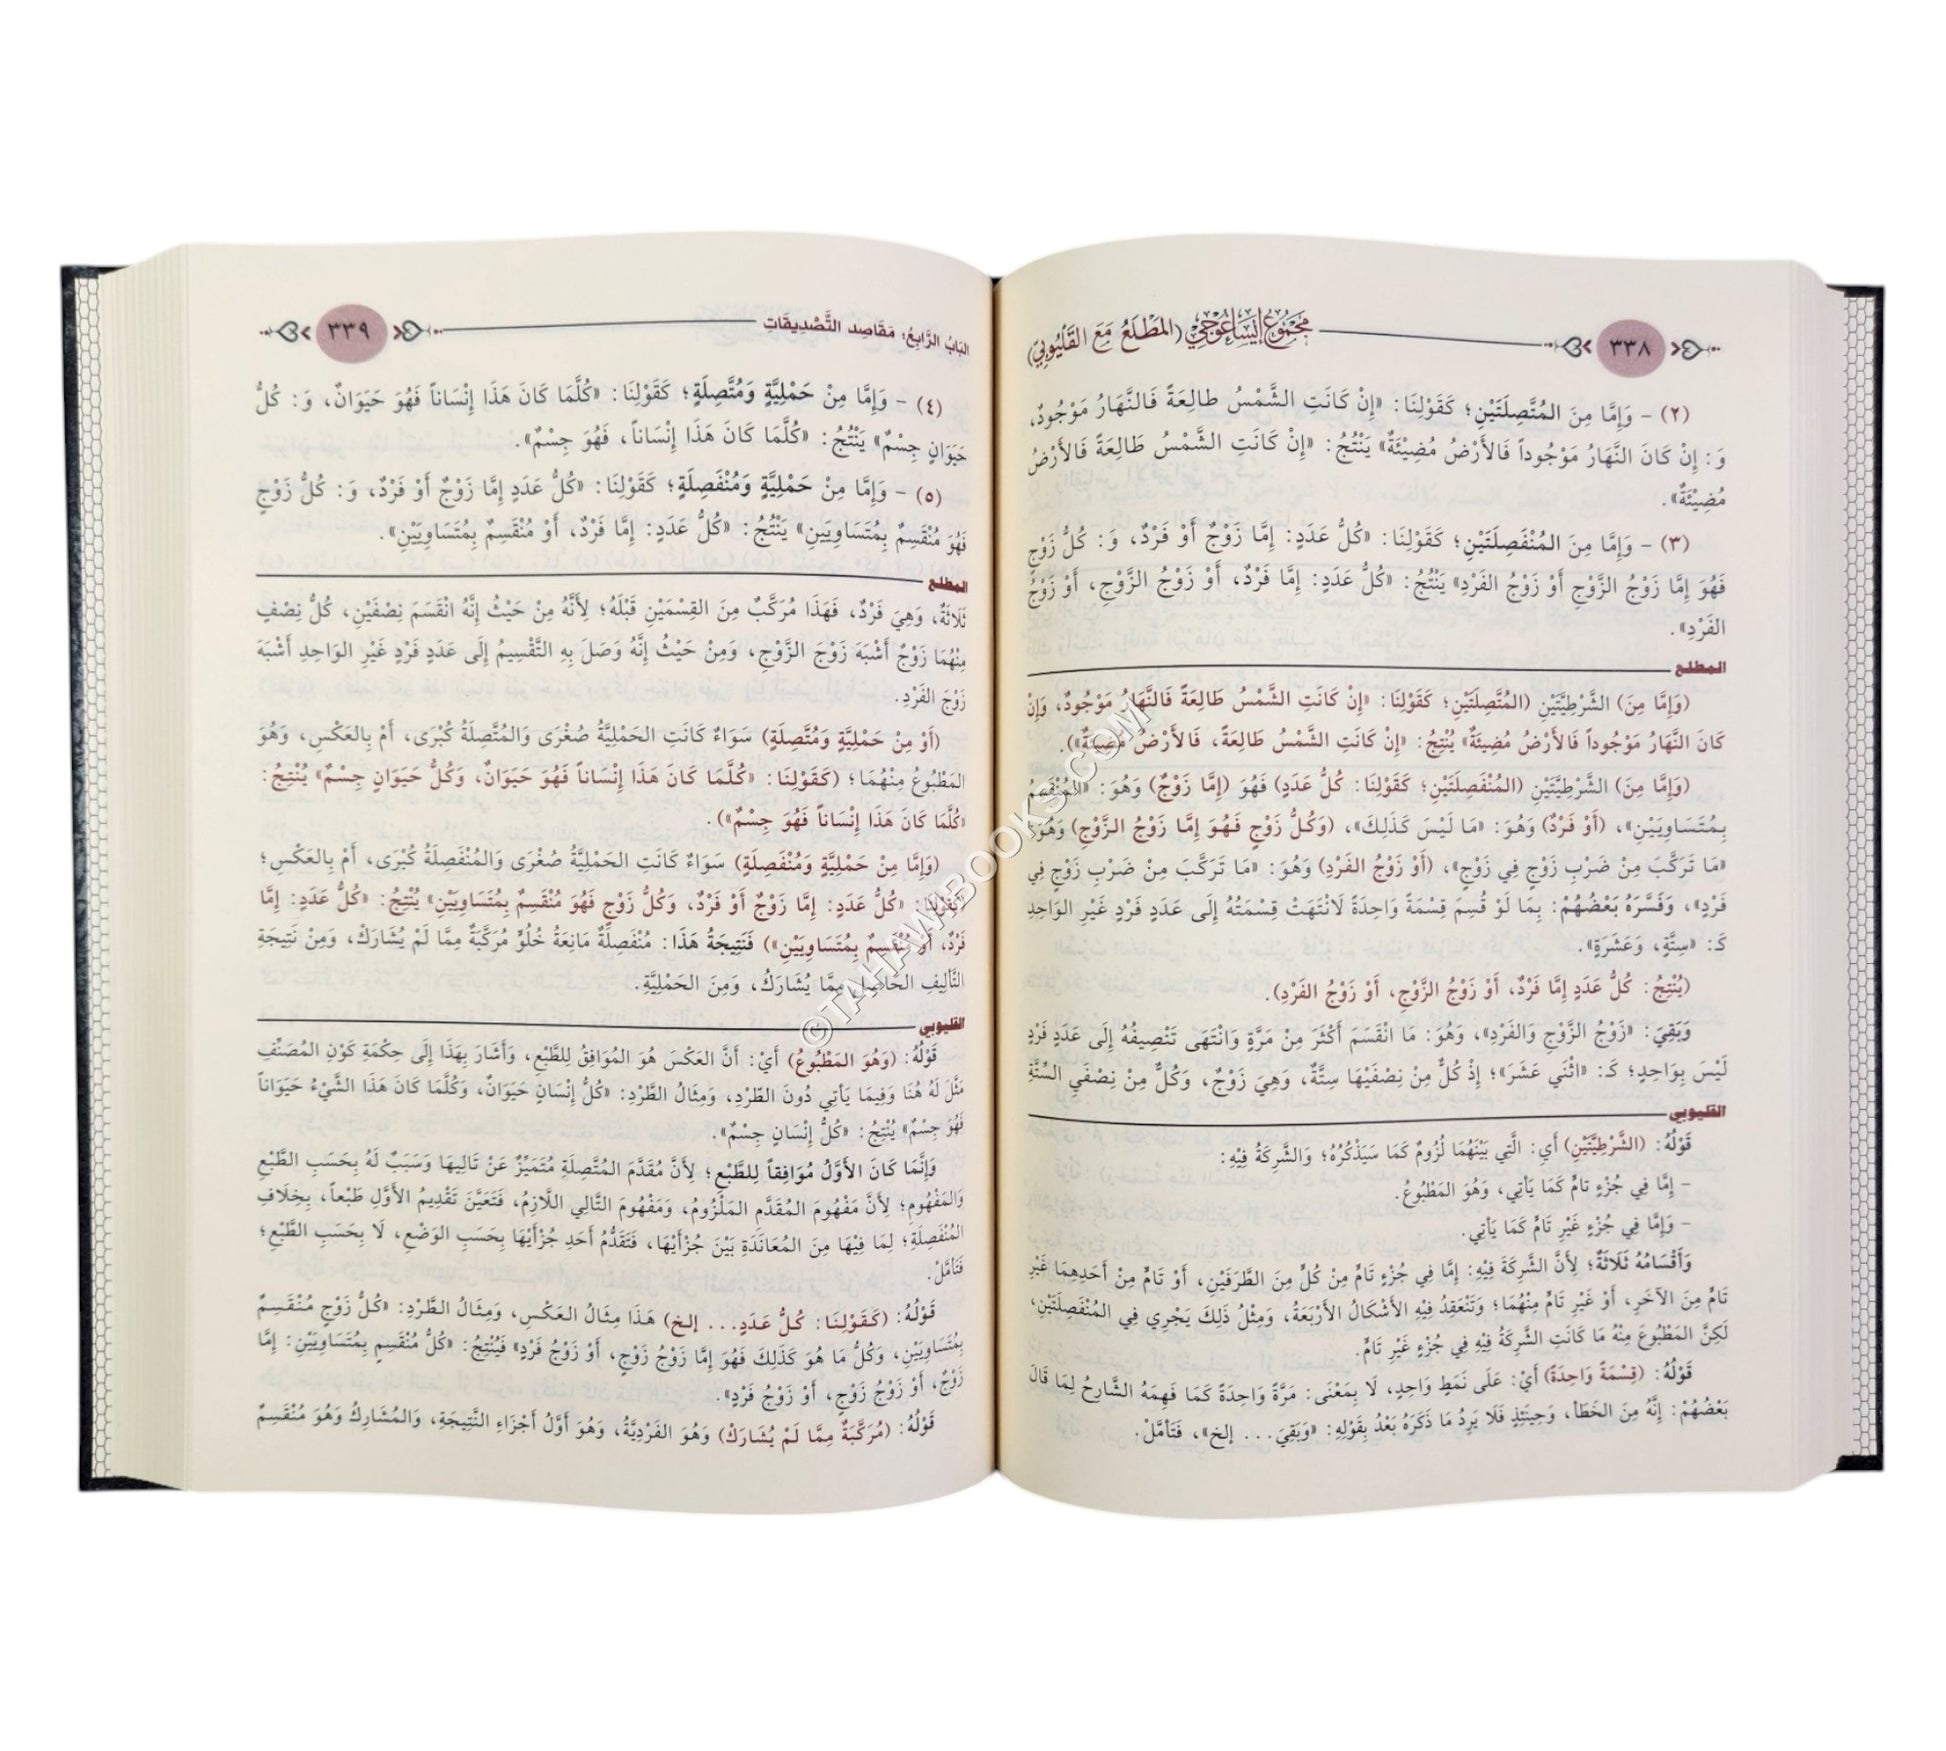 ٣٣٨
مَجْمُوعُ إِيسَاغُوجِي (المَطْلَعُ مَعَ القَلْيُوبِي)
(٢) - وَإِمَّا مِنَ المُتَّصِلَتَيْنِ؛ كَقَوْلِنَا: «إِنْ كَانَتِ الشَّمْسُ طالِعَةً فَالنَّهَارُ مَوْجُودٌ،
وَ: إِنْ كَانَ النَّهَارُ مَوْجُوداً فَالأَرْضُ مُضِيْئَةٌ» يَنْتُجُ: «إِنْ كَانَتِ الشَّمْسُ طَالِعَةً فَالأَرْضُ
مُضِيْئَةٌ».
(٣) - وَإِمَّا مِنَ المُنْفَصِلَتَيْنِ؛ كَقَوْلِنَا: «كُلُّ عَدَدٍ: إِمَّا زَوْجٌ أَوْ فَرْدٌ، وَ: كُلُّ زَوْجٍ
فَهُوَ إِمَّا زَوْجُ الزَّوْجِ أَوْ زَوْجُ الفَرْدِ» يَنْتُجُ: «كُلُّ عَدَدٍ: إِمَّا فَرْدٌ، أَوْ زَوْجُ الزَّوْجِ، أَوْ زَوْجُ
الفَرْدِ».
المطلع
(وَإِمَّا مِنَ) الشَّرْطِيَّتَيْنِ (المُتَّصِلَتَيْنِ؛ كَقَوْلِنَا: «إِنْ كَانَتِ الشَّمْسُ طَالِعَةً فَالنَّهَارُ مَوْجُودٌ، وَإِنْ
كَانَ النَّهَارُ مَوْجُوداً فَالأَرْضُ مُضِيئَةٌ» يُنْتِجُ: «إِنْ كَانَتِ الشَّمْسُ طَالِعَةً، فَالأَرْضُ مُضِيئَةٌ»).
(وَإِمَّا مِنَ) الشَّرْطِيَّتَيْنِ (المُنْفَصِلَتَيْنِ؛ كَقَوْلِنَا: كُلُّ عَدَدٍ) فَهُوَ (إِمَّا زَوْجٌ) وَهُوَ: «المُنْقَسِمُ
بِمُتَسَاوِيَيْنِ»، (أَوْ فَرْدٌ) وَهُوَ: «مَا لَيْسَ كَذَلِكَ»، (وَكُلُّ زَوْجٍ فَهُوَ إِمَّا زَوْجُ الزَّوْجِ) وَهُوَ:
«مَا تَرَكَّبَ مِنْ ضَرْبِ زَوْجٍ فِي زَوْجٍ»، (أَوْ زَوْجُ الفَرْدِ) وَهُوَ: «مَا تَرَكَّبَ مِنْ ضَرْبِ زَوْجٍ فِي
فَرْدٍ»، وَفَسَّرَهُ بَعْضُهُمْ: بِمَا لَوْ قُسِمَ قِسْمَةً وَاحِدَةً لَانْتَهَتْ قِسْمَتُهُ إِلَى عَدَدٍ فَرْدٍ غَيْرِ الوَاحِدِ
كَـ: «سِتَّةٍ، وَعَشَرَةٍ».
(يُنْتِجُ: كُلُّ عَدَدٍ إِمَّا فَرْدٌ، أَوْ زَوْجُ الزَّوْجِ، أَوْ زَوْجُ الفَرْدِ).
وَبَقِيَ: «زَوْجُ الزَّوْجِ وَالفَرْدِ»، وَهُوَ: مَا انْقَسَمَ أَكْثَرَ مِنْ مَرَّةٍ وَانْتَهَى تَنْصِيفُهُ إِلَى عَدَدٍ فَرْدٍ
لَيْسَ بِوَاحِدٍ؛ كَـ: «اثْنَي عَشَرَ»؛ إِذْ كُلٌّ مِنْ نِصْفَيْهَا سِتَّةٌ، وَهِيَ زَوْجٌ، وَكُلٌّ مِنْ نِصْفَيِ السِّتَّةِ
القليوبي
قَوْلُهُ: (الشَّرْطِيَّتَيْنِ) أَيِ: الَّتِي بَيْنَهُمَا لُزُومٌ كَمَا سَيَذْكُرُهُ؛ وَالشَّرِكَةُ فِيْهِ:
- إِمَّا فِي جُزْءٍ تامٍّ كَمَا يَأْتِي، وَهُوَ المَطْبُوعُ.
- وَإِمَّا فِي جُزْءٍ غَيْرِ تَامٍّ كَمَا يَأْتِي.
وَأَقْسَامُهُ ثَلَاثَةٌ؛ لِأَنَّ الشَّرِكَةَ فِيْهِ: إِمَّا فِي جُزْءٍ تَامٍّ مِنْ كُلٍّ مِنَ الطَّرَفَيْنِ، أَوْ تَامٍّ مِنْ أَحَدِهِمَا غَيْرِ
تَامٍّ مِنَ الآخَرِ، أَوْ غَيْرِ تَامٍّ مِنْهُمَا؛ وَتَنْعَقِدُ فِيْهِ الأَشْكَالُ الأَرْبَعَةُ، وَمِثْلُ ذَلِكَ يَجْرِي فِي المُنْفَصِلَتَيْنِ،
لَكِنَّ المَطْبُوعَ مِنْهُ مَا كَانَتِ الشَّرِكَةُ فِيْهِ فِي جُزْءٍ غَيْرِ تَامٍّ.
قَوْلُهُ: (قِسْمَةً وَاحِدَةً) أَيْ: عَلَى نَمَطٍ وَاحِدٍ، لَا بِمَعْنَى: مَرَّةً وَاحِدَةً كَمَا فَهِمَهُ الشَّارِحُ لِمَا قَالَ
بَعْضُهُمْ: إِنَّهُ مِنَ الخَطَأِ، وَحِينَئِذٍ فَلَا يَرِدُ مَا ذَكَرَهُ بَعْدُ بِقَوْلِهِ: «وَبَقِيَ... إلخ»، فَتَأَمَّلْ.
البَابُ الرَّابِعُ: مَقَاصِد التَّصْدِيقَاتِ
٣٣٩
(٤) - وَإِمَّا مِنْ حَمْلِيَّةٍ وَمُتَّصِلَةٍ؛ كَقَوْلِنَا: «كُلَّمَا كَانَ هَذَا إِنْسَاناً فَهُوَ حَيَوَانٌ، وَ: كُلُّ
حَيَوَانٍ جِسْمٌ» يَنْتُجُ: «كُلَّمَا كَانَ هَذَا إِنْسَاناً، فَهُوَ جِسْمٌ».
(٥) - وَإِمَّا مِنْ حَمْلِيَّةٍ وَمُنْفَصِلَةٍ؛ كَقَوْلِنَا: «كُلُّ عَدَدٍ إِمَّا زَوْجٌ أَوْ فَرْدٌ، وَ: كُلُّ زَوْجٍ
فَهُوَ مُنْقَسِمٌ بِمُتَسَاوِيَيْنِ» يَنْتُجُ: «كُلُّ عَدَدٍ: إِمَّا فَرْدٌ، أَوْ مُنْقَسِمٌ بِمُتَسَاوِيَيْنِ».
المطلع
ثَلَاثَةٌ، وَهِيَ فَرْدٌ، فَهَذَا مُرَكَّبٌ مِنَ القِسْمَيْنِ قَبْلَهُ؛ لِأَنَّهُ مِنْ حَيْثُ إِنَّهُ انْقَسَمَ نِصْفَيْنِ، كُلُّ نِصْفٍ
مِنْهُمَا زَوْجٌ أَشْبَهَ زَوْجَ الزَّوْجِ، وَمِنْ حَيْثُ إِنَّهُ وَصَلَ بِهِ التَّقْسِيمُ إِلَى عَدَدٍ فَرْدٍ غَيْرِ الوَاحِدِ أَشْبَهَ
زَوْجَ الفَرْدِ.
(أَوْ مِنْ حَمْلِيَّةٍ وَمُتَّصِلَةٍ) سَوَاءٌ كَانَتِ الحَمْلِيَّةُ صُغْرَى وَالمُتَّصِلَةُ كُبْرَى، أَمْ بِالعَكْسِ، وَهُوَ
المَطْبُوعُ مِنْهُمَا؛ (كَقَوْلِنَا: «كُلَّمَا كَانَ هَذَا إِنْسَاناً فَهُوَ حَيَوَانٌ، وَكُلُّ حَيَوَانٍ جِسْمٌ» يُنْتِجُ:
«كُلَّمَا كَانَ هَذَا إِنْسَاناً فَهُوَ جِسْمٌ»).
(وَإِمَّا مِنْ حَمْلِيَّةٍ وَمُنْفَصِلَةٍ) سَوَاءٌ كَانَتِ الحَمْلِيَّةُ صُغْرَى وَالمُنْفَصِلَةُ كُبْرَى، أَمْ بِالعَكْسِ؛
(كَقَوْلِنَا: «كُلُّ عَدَدٍ: إِمَّا زَوْجٌ أَوْ فَرْدٌ، وَكُلُّ زَوْجٍ فَهُوَ مُنْقَسِمٌ بِمُتَسَاوِيَيْنِ» يُنْتِجُ: «كُلُّ عَدَدٍ: إِمَّا
فَرْدٌ، أَوْ مُنْقَسِمٌ بِمُتَسَاوِيَيْنِ») فَنَتِيجَةُ هَذَا: مُنْفَصِلَةٌ مَانِعَةُ خُلُوٍّ مُرَكَّبَةٌ مِمَّا لَمْ يُشَارَكْ، وَمِنْ نَتِيجَةِ
التَّأْلِيفِ الحَاصِلِ مِمَّا يُشَارَكُ، وَمِنَ الحَمْلِيَّةِ.
القليوبي
قَوْلُهُ: (وَهُوَ المَطْبُوعُ) أَيْ: أَنَّ العَكْسَ هُوَ المُوَافِقُ لِلطَّبْعِ، وَأَشَارَ بِهَذَا إِلَى حِكْمَةِ كَوْنِ المُصَنِّفِ
مَثَّلَ لَهُ هُنَا وَفِيمَا يَأْتِي دُونَ الطَّرْدِ، وَمِثَالُ الطَّرْدِ: «كُلُّ إِنْسَانٍ حَيَوَانٌ، وَكُلَّمَا كَانَ هَذَا الشَّيْءُ حَيَوَاناً
فَهُوَ جِسْمٌ» يُنْتِجُ: «كُلُّ إِنْسَانٍ جِسْمٌ».
وَإِنَّمَا كَانَ الأَوَّلُ مُوَافِقاً لِلطَّبْعِ؛ لِأَنَّ مُقَدَّمَ المُتَّصِلَةِ مُتَمَيِّزٌ عَنْ تَالِيهَا وَسَبَبٌ لَهُ بِحَسَبِ الطَّبْعِ
وَالمَفْهُومِ؛ لِأَنَّ مَفْهُومَ المُقَدَّمِ المَلْزُومُ، وَمَفْهُومَ التَّالِي اللَّازِمُ، فَتَعَيَّنَ تَقْدِيمُ الأَوَّلِ طَبْعاً، بِخِلَافِ
المُنْفَصِلَةِ؛ لِمَا فِيْهَا مِنَ المُعَانَدَةِ بَيْنَ جُزْأَيْهَا، فَتَقَدُّمُ أَحَدِ جُزْأَيْهَا بِحَسَبِ الوَضْعِ، لَا بِحَسَبِ الطَّبْعِ؛
فَتَأَمَّلْ.
قَوْلُهُ: (كَقَوْلِنَا: كُلُّ عَدَدٍ... إلخ) هَذَا مِثَالُ العَكْسِ، وَمِثَالُ الطَّرْدِ: «كُلُّ زَوْجٍ مُنْقَسِمٌ
بِمُتَسَاوِيَيْنِ، وَكُلُّ مَا هُوَ كَذَلِكَ فَهُوَ إِمَّا زَوْجُ زَوْجٍ، أَوْ زَوْجُ فَرْدٍ» فَيُنْتِجُ: «كُلُّ مُنْقَسِمٍ بِمُتَسَاوِيَيْنِ: إِمَّا
زَوْجٌ، أَوْ زَوْجُ زَوْجٍ، أَوْ زَوْجُ فَرْدٍ».
قَوْلُهُ: (مُرَكَّبَةٌ مِمَّا لَمْ يُشَارَكْ) وَهُوَ الفَرْدِيَّةُ، وَهُوَ أَوَّلُ أَجْزَاءِ النَّتِيجَةِ، وَالمُشَارِكُ وَهُوَ مُنْقَسِمٌ
©TAHAWIBOOKS.COM